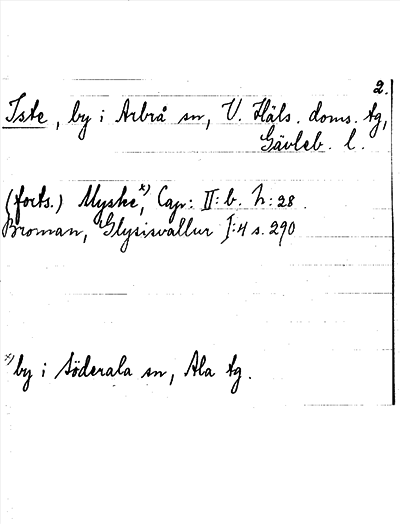 2.
Iste, by i Arbrå sn, V. Häls. doms. tg,
Gävleb. l.
(forts.) Myske x), Cap: II: b. h: 28.
Broman, Glysisvallur I:4 s. 290
x) by i Söderala sn, Ala tg.